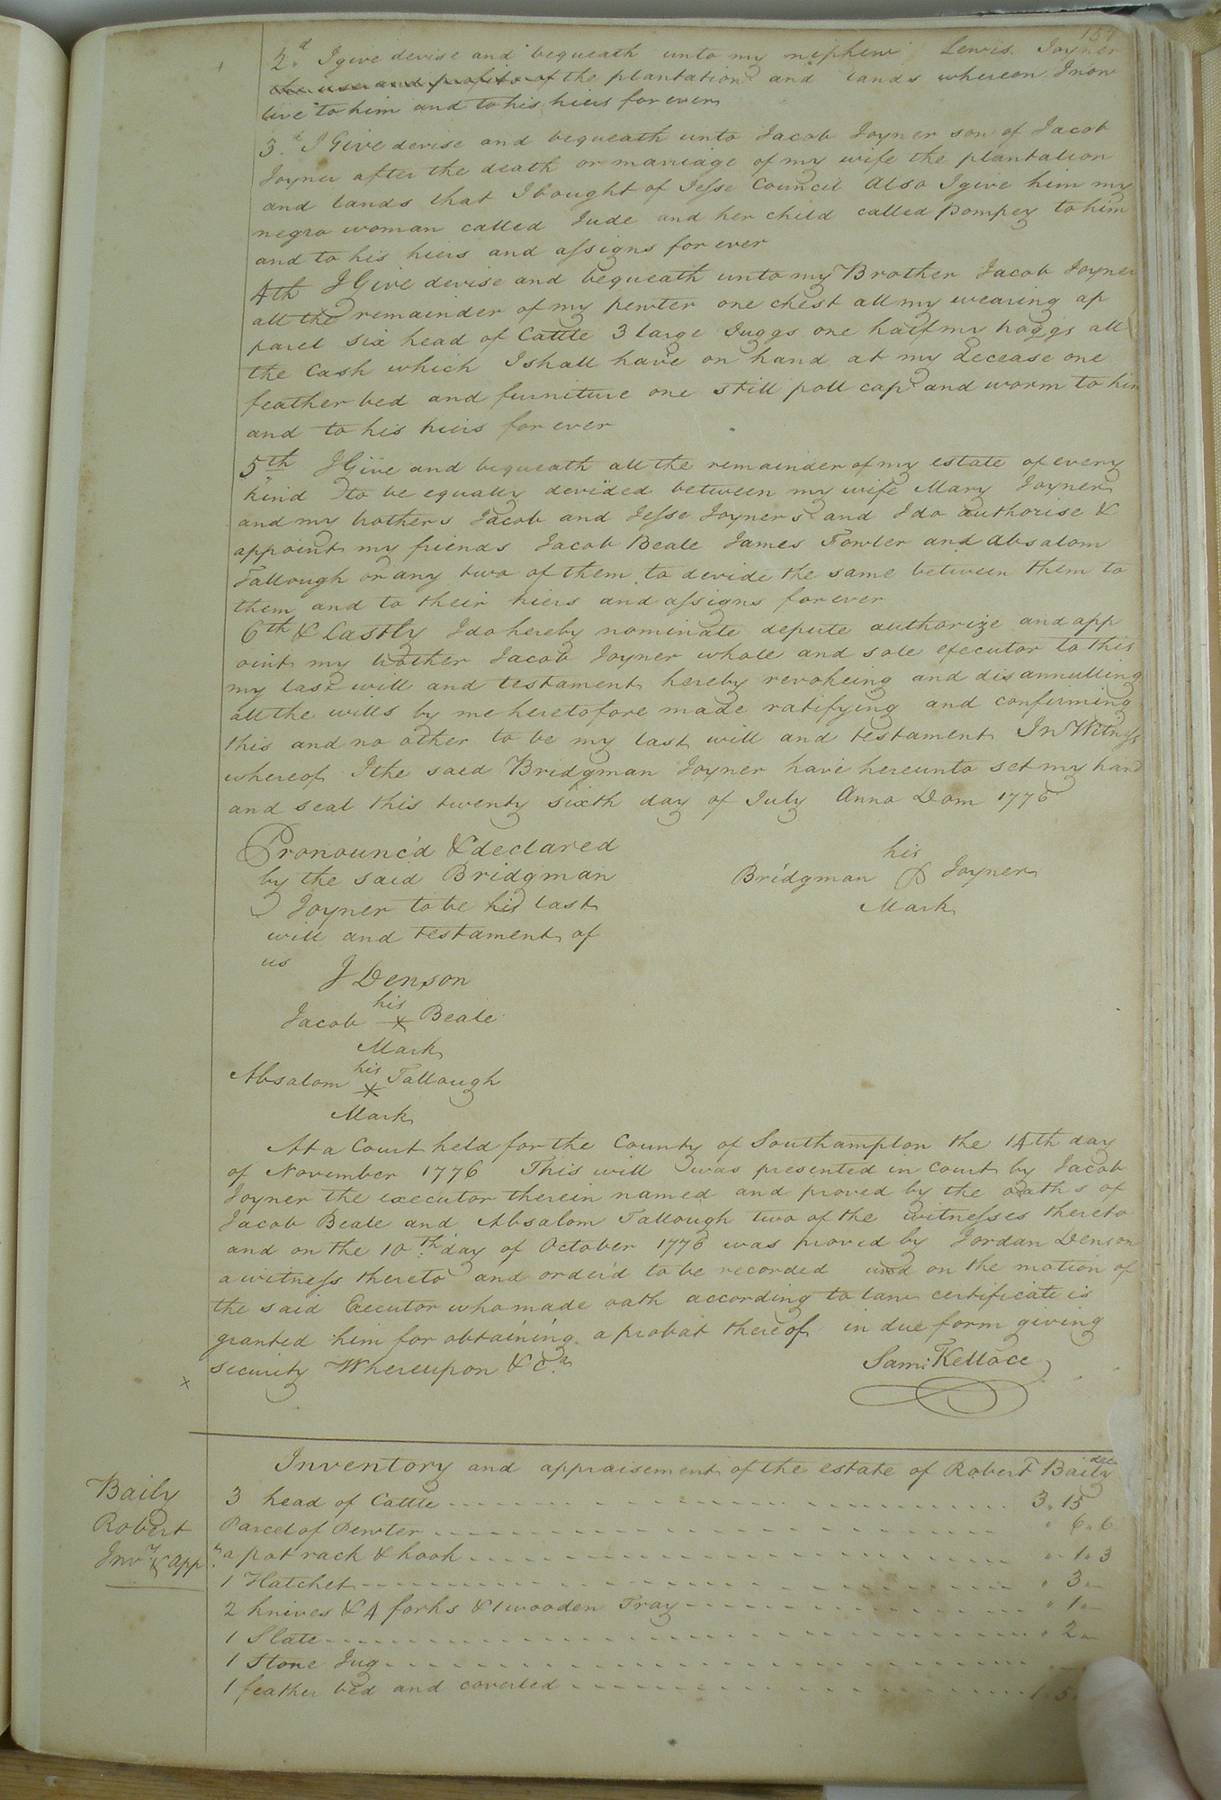 157
2d. I give devise and bequeath unto my nephew Lewis Joyner
the use and profits of the plantation and lands whereon I now
live to him and to his hiers for ever
3d. I Give devise and bequeath unto Jacob Joyner son of Jacob
Joyner after the death or marriage of my wife the plantation
and lands that I bought of Jesse Council Also I give him my
negro woman called Jude and her child called Pompey to him
and to his hiers and assigns for ever
4th I Give devise and bequeath unto my Brother Jacob Joyner
all the remainder of my pewter one chest all my wearing ap
parel six head of Cattle 3 large Juggs one half my hoggs all
the Cash which I shall have on hand at my decease one
feather bed and furniture one still poll cap and worm to him
and to his hiers for ever
5th I Give and bequeath all the remainder of my estate of every
kind to be equally devided between my wife Mary Joyner
and my brothers Jacob and Jesse Joyners and I do authorise &
appoint my friends Jacob Beale James Fowler and Absalom
Tallough or any two of them to devide the same between them to
them and to their hiers and assigns for ever
6th & Lastly I do hereby nominate depute authorize and app
oint my brother Jacob Joyner whole and sole executor to this
my last will and testament hereby revokeing and disannulling
all the wills by me heretofore made ratifying and confirming
this and no other to be my last will and testament In Witness
whereof I the said Bridgman Joyner have hereunto set my hand
and seal this twenty sixth day of July Anno Dom 1776
Pronounc'd & declared
by the said Bridgman
Joyner to be his last
will and testament of
us
his
Bridgman Joyner
Mark
J Denson
his
Jacob x Beale
Mark
his
Absalom x Tallough
Mark
At a Court held for the County of Southampton the 14th day
of November 1776 This will was presented in Court by Jacob
Joyner the executor therein named and proved by the oaths of
Jacob Beale and Absalom Tallough two of the witnesses thereto
and on the 10th day of October 1776 was proved by Jordan Denson
a witness thereto and order'd to be recorded and on the motion of
the said Executor who made oath according to law certificate is
granted him for obtaining a probat thereof in due form giving
security Whereupon &ca
Sam: Kelloce
x
Inventory and appraisement of the estate of Robert Baily decd
Baily
Robert
Invy & appt
3 head of Cattle 3 15
Parcel of Pewter 6 6
a pot rack & hook 1 3
1 Hatchet 3
2 knives & 4 forks & 1 wooden Tray 1
1 Slate 2
1 Stone Jug
1 feather bed and coverled 1 5